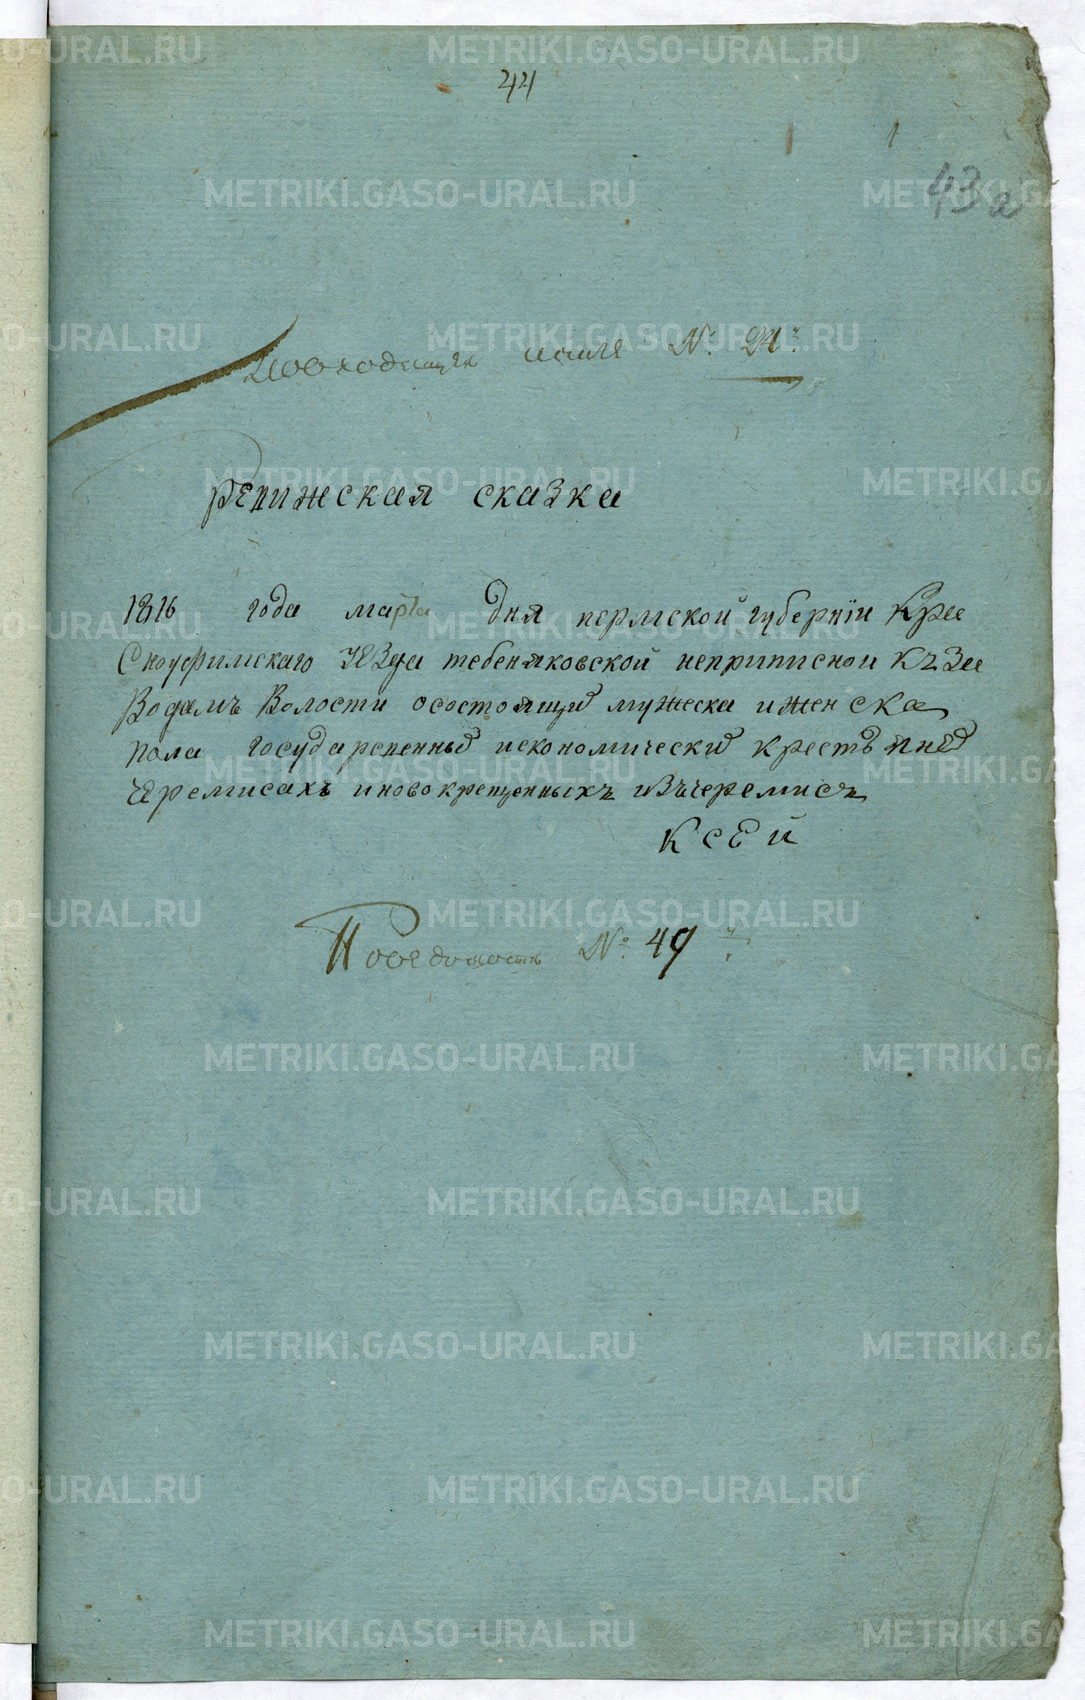 44
43а
по входящей № 24
Ревижская сказка
1816 года марта дня пермской губернїи Кра
Сноуфимскаго уезда тебеняковской неприписнои къ за
Водамъ Волости осостоящи мужеска иженска
пола государсненны иекономически крестьяне
черемисахъ иновокрещенныхъ изъчеремисъ
Ксей
По ведомости № 49